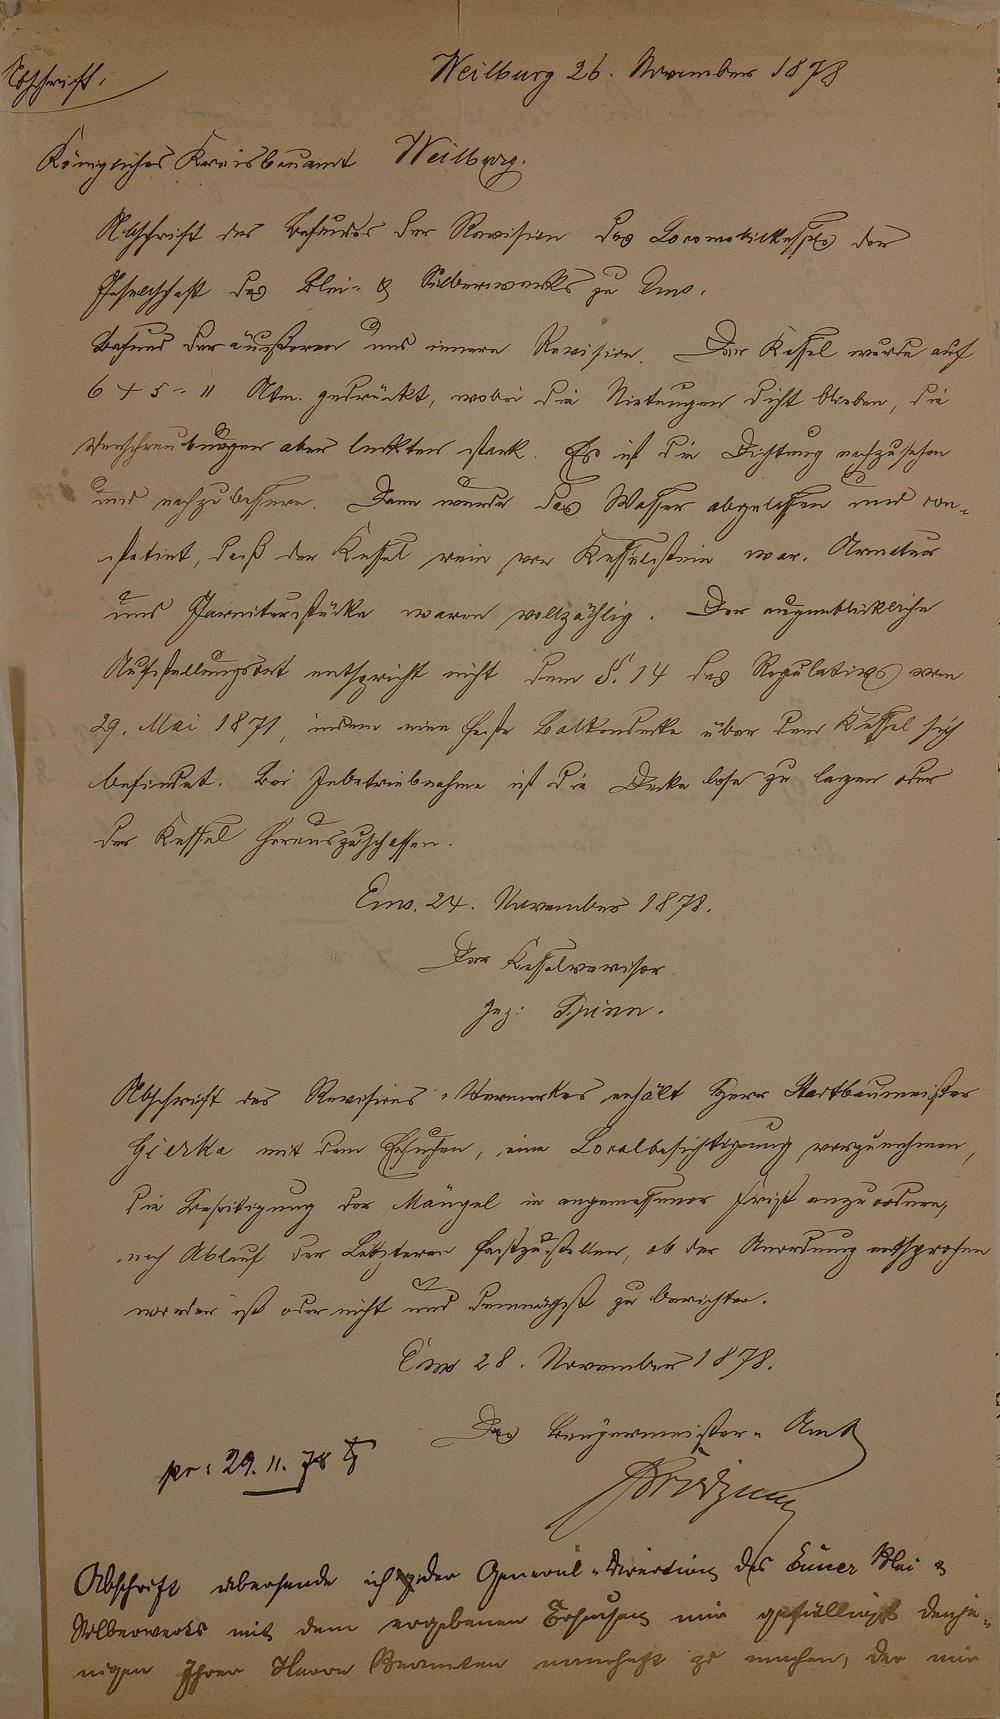 Abschrift.
Weilburg 26. November 1878
Königliches Kreisbauamt Weilburg.
Abschrift des Befundes der Revision des Locomobilkessels der
Gesellschaft des Blei- & Silberwerks zu Ems.
Befund der äußeren und innern Revision. Der Kessel wurde auf
6 + 5 = 11 Atm. gedrückt, wobei die Nietungen dicht blieben, die
Verschraubungen aber leckten stark. Es ist die Dichtung nachzusehen
und nachzubessern. Dann wurde das Wasser abgelassen und con-
statirt, daß der Kessel rein von Kesselstein war. Armatur
und Garniturstücke waren vollzählig. Der augenblickliche
Aufstellungsort entspricht nicht dem §. 14 des Regulativs vom
29. Mai 1871, indem eine feste Balkendecke über dem Kessel sich
befindet. Bei Inbetriebnahme ist die Decke lose zu legen oder
der Kessel herauszuschaffen.
Ems. 24. November 1878.
Der Kesselrevisor
gez:
Abschrift des Revisions-Vermerkes erhält Herr Stadtbaumeister
Gierka mit dem Ersuchen, eine Localbesichtigung vorzunehmen,
die Beseitigung der Mängel in angemessener Frist anzuordnen,
nach Ablauf der Letzteren festzustellen, ob der Anordnung entsprochen
worden ist oder nicht und demnächst zu berichten.
Ems 28. November 1878.
Das Bürgermeister-Amt
pr: 29. 11. 78
Abschrift übersende ich der General-Direction des Emser Blei &
Silberwerks mit dem ergebenen Ersuchen mir gefälligst denje-
nigen Ihrer Herren Beamten namhaft zu machen, der mir